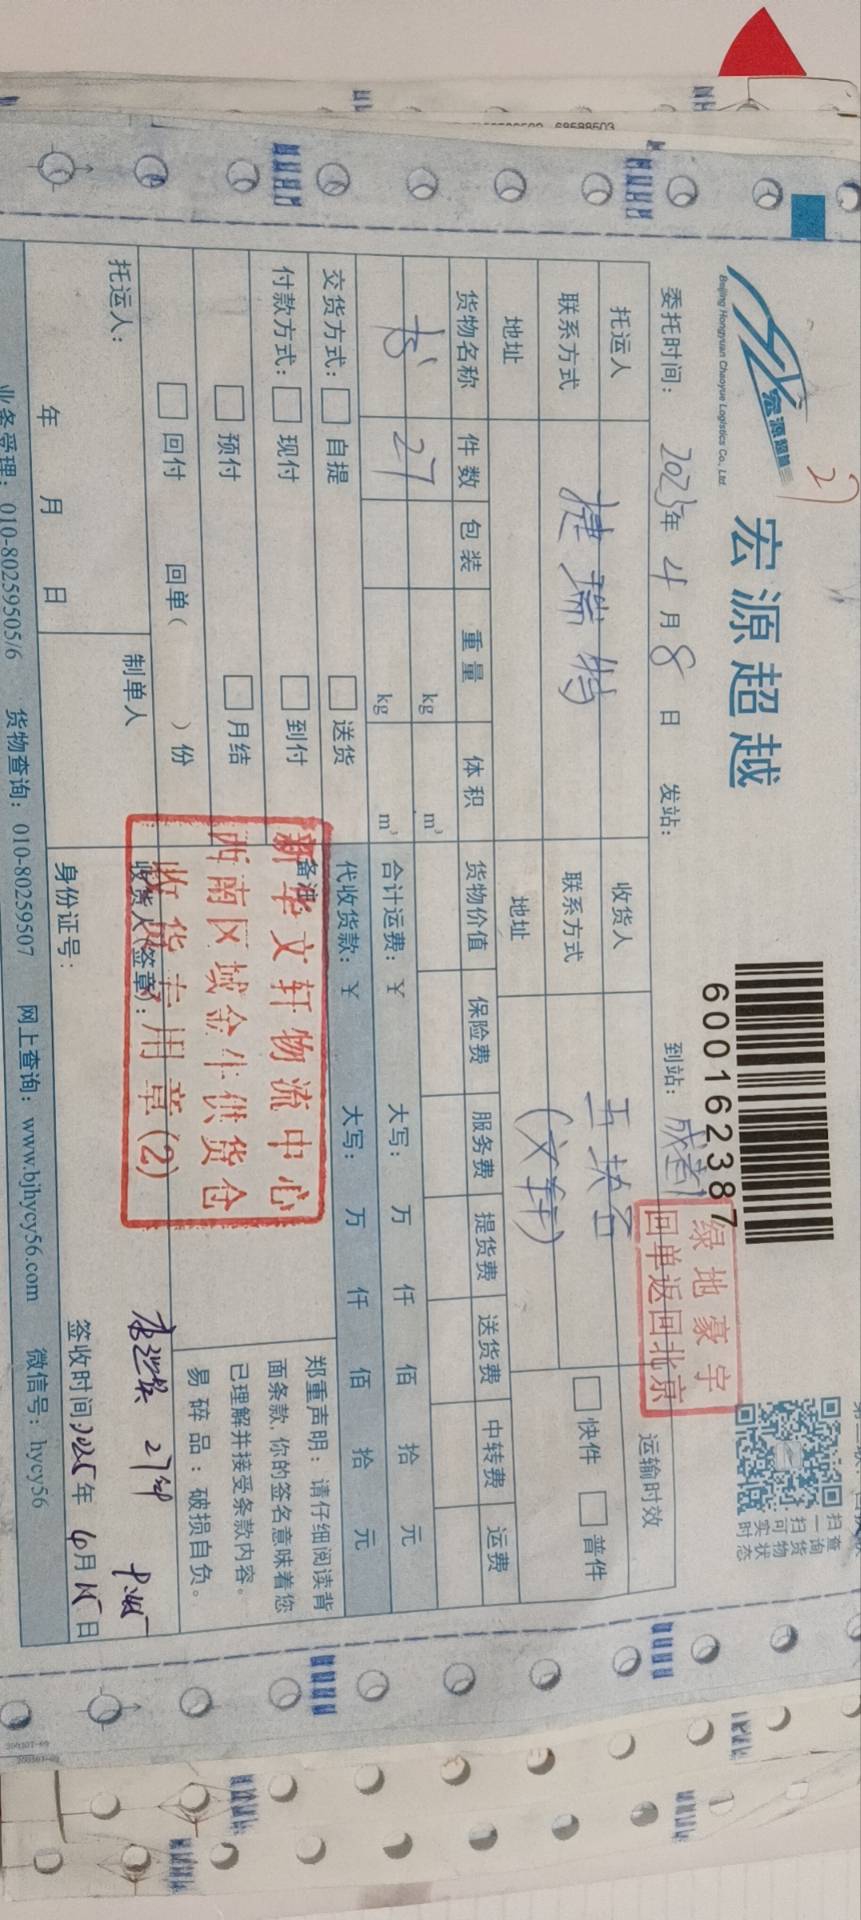 68598503
27
宏源超越
Beijing Hongyuan Chaoyue Logistics Co., Ltd
宏源超越
60016238​7
绿地豪宇
回单返回北京
扫一扫
查询货物
可实时状态
委托时间: 2023年 4月 8日 发站: 到站: 成都
托运人 捷瑞特 收货人 运输时效
联系方式 联系方式 快件 普件
地址 地址 (文轩)
货物名称 件数 包装 重量 体积 货物价值 保险费 服务费 提货费 送货费 中转费 运费
书 27 kg m³
kg m³ 合计运费: ¥ 大写: 万 仟 佰 拾 元
交货方式: 自提 送货 代收货款: ¥ 大写: 万 仟 佰 拾 元
付款方式: 现付 到付 备注:
预付 月结
回付 回单( )份
郑重声明:请仔细阅读背
面条款,你的签名意味着您
已理解并接受条款内容。
易碎品:破损自负。
新华文轩物流中心
西南区域金牛供货仓
收货专用章(2)
托运人: 制单人 收货人(签章): 27件
年 月 日 身份证号: 签收时间: 2025年 6月 15日
业务受理: 010-80259505/6 货物查询: 010-80259507 网上查询: www.bjhycy56.com 微信号: hycy56